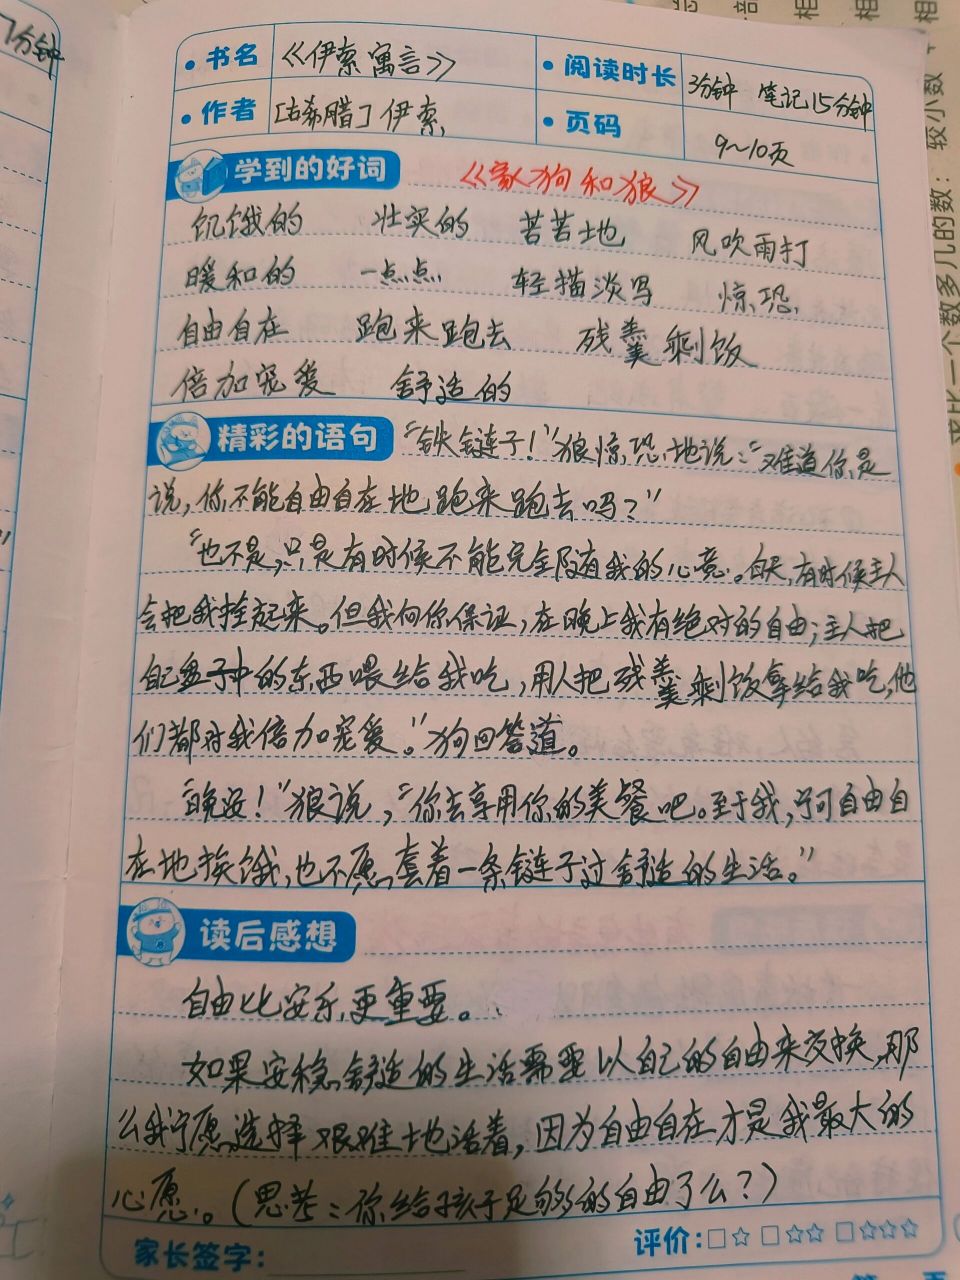 7分钟
书名 《伊索寓言》 阅读时长 3分钟 笔记15分钟
作者 [古希腊] 伊索 页码 9~10页
学到的好词 《家狗和狼》
饥饿的 壮实的 苦苦地 风吹雨打
暖和的 一点点 轻描淡写 惊恐
自由自在 跑来跑去 残羹剩饭
倍加宠爱 舒适的
精彩的语句 “铁链子！”狼惊恐地说：“难道你是
说，你不能自由自在地跑来跑去吗？”
“也不是，只是有时候不能完全随我的心意。白天，有时候主人
会把我拴起来。但我向你保证，在晚上我有绝对的自由；主人把
自己盘子中的东西喂给我吃，用人把残羹剩饭拿给我吃，他
们都对我倍加宠爱。”狗回答道。
“晚安！”狼说，“你去享用你的美餐吧。至于我，宁可自由自
在地挨饿，也不愿套着一条链子过舒适的生活。”
读后感想
自由比安乐更重要。
如果安稳舒适的生活需要以自己的自由来交换，那
么我宁愿选择艰难地活着，因为自由自在才是我最大的
心愿。（思考：你给孩子足够的自由了么？）
家长签字： 评价：□☆ □☆☆ □☆☆☆
相
相
相
较小数
比一个数多几的数：